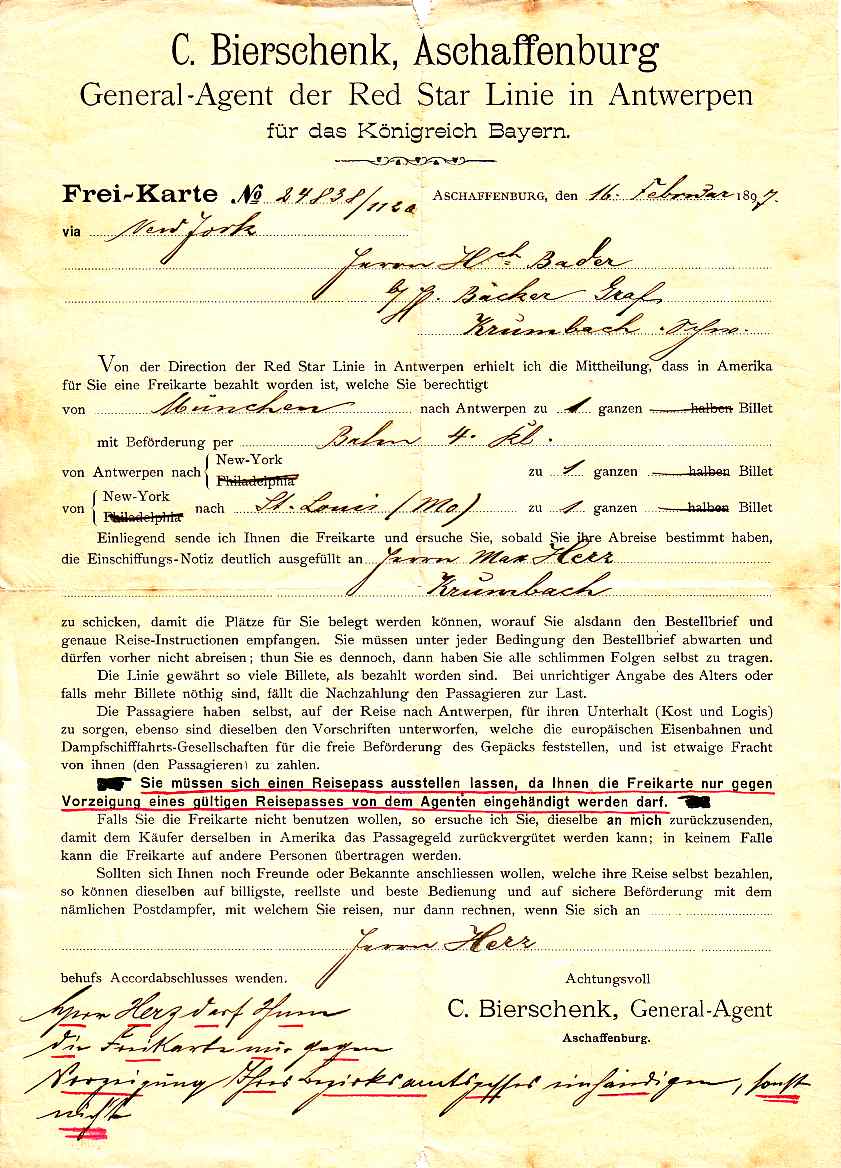 C. Bierschenk, Aschaffenburg
General-Agent der Red Star Linie in Antwerpen
für das Königreich Bayern.
Frei-Karte № 24838/1120 ASCHAFFENBURG, den 16. Februar 1897.
via New York
Herrn Hch Bader
Bäcker Graf
Krumbach Schw.
Von der Direction der Red Star Linie in Antwerpen erhielt ich die Mittheilung, dass in Amerika
für Sie eine Freikarte bezahlt worden ist, welche Sie berechtigt
von München nach Antwerpen zu 1 ganzen halben Billet
mit Beförderung per Bahn 4. Kl.
von Antwerpen nach { New-York Philadelphia zu 1 ganzen halben Billet
von { New-York Philadelphia nach St. Louis (Mo) zu 1 ganzen halben Billet
Einliegend sende ich Ihnen die Freikarte und ersuche Sie, sobald Sie ihre Abreise bestimmt haben,
die Einschiffungs-Notiz deutlich ausgefüllt an Herrn Max Herz
Krumbach
zu schicken, damit die Plätze für Sie belegt werden können, worauf Sie alsdann den Bestellbrief und
genaue Reise-Instructionen empfangen. Sie müssen unter jeder Bedingung den Bestellbrief abwarten und
dürfen vorher nicht abreisen; thun Sie es dennoch, dann haben Sie alle schlimmen Folgen selbst zu tragen.
Die Linie gewährt so viele Billete, als bezahlt worden sind. Bei unrichtiger Angabe des Alters oder
falls mehr Billete nöthig sind, fällt die Nachzahlung den Passagieren zur Last.
Die Passagiere haben selbst, auf der Reise nach Antwerpen, für ihren Unterhalt (Kost und Logis)
zu sorgen, ebenso sind dieselben den Vorschriften unterworfen, welche die europäischen Eisenbahnen und
Dampfschifffahrts-Gesellschaften für die freie Beförderung des Gepäcks feststellen, und ist etwaige Fracht
von ihnen (den Passagieren) zu zahlen.
Sie müssen sich einen Reisepass ausstellen lassen, da Ihnen die Freikarte nur gegen
Vorzeigung eines gültigen Reisepasses von dem Agenten eingehändigt werden darf.
Falls Sie die Freikarte nicht benutzen wollen, so ersuche ich Sie, dieselbe an mich zurückzusenden,
damit dem Käufer derselben in Amerika das Passagegeld zurückvergütet werden kann; in keinem Falle
kann die Freikarte auf andere Personen übertragen werden.
Sollten sich Ihnen noch Freunde oder Bekannte anschliessen wollen, welche ihre Reise selbst bezahlen,
so können dieselben auf billigste, reellste und beste Bedienung und auf sichere Beförderung mit dem
nämlichen Postdampfer, mit welchem Sie reisen, nur dann rechnen, wenn Sie sich an
Herrn Herz
behufs Accordabschlusses wenden. Achtungsvoll
C. Bierschenk, General-Agent
Aschaffenburg.
Herr Herz darf Ihnen
die Freikarte nur gegen
Vorzeigung Ihres Bezirksamtspasses einhändigen, sonst
nicht